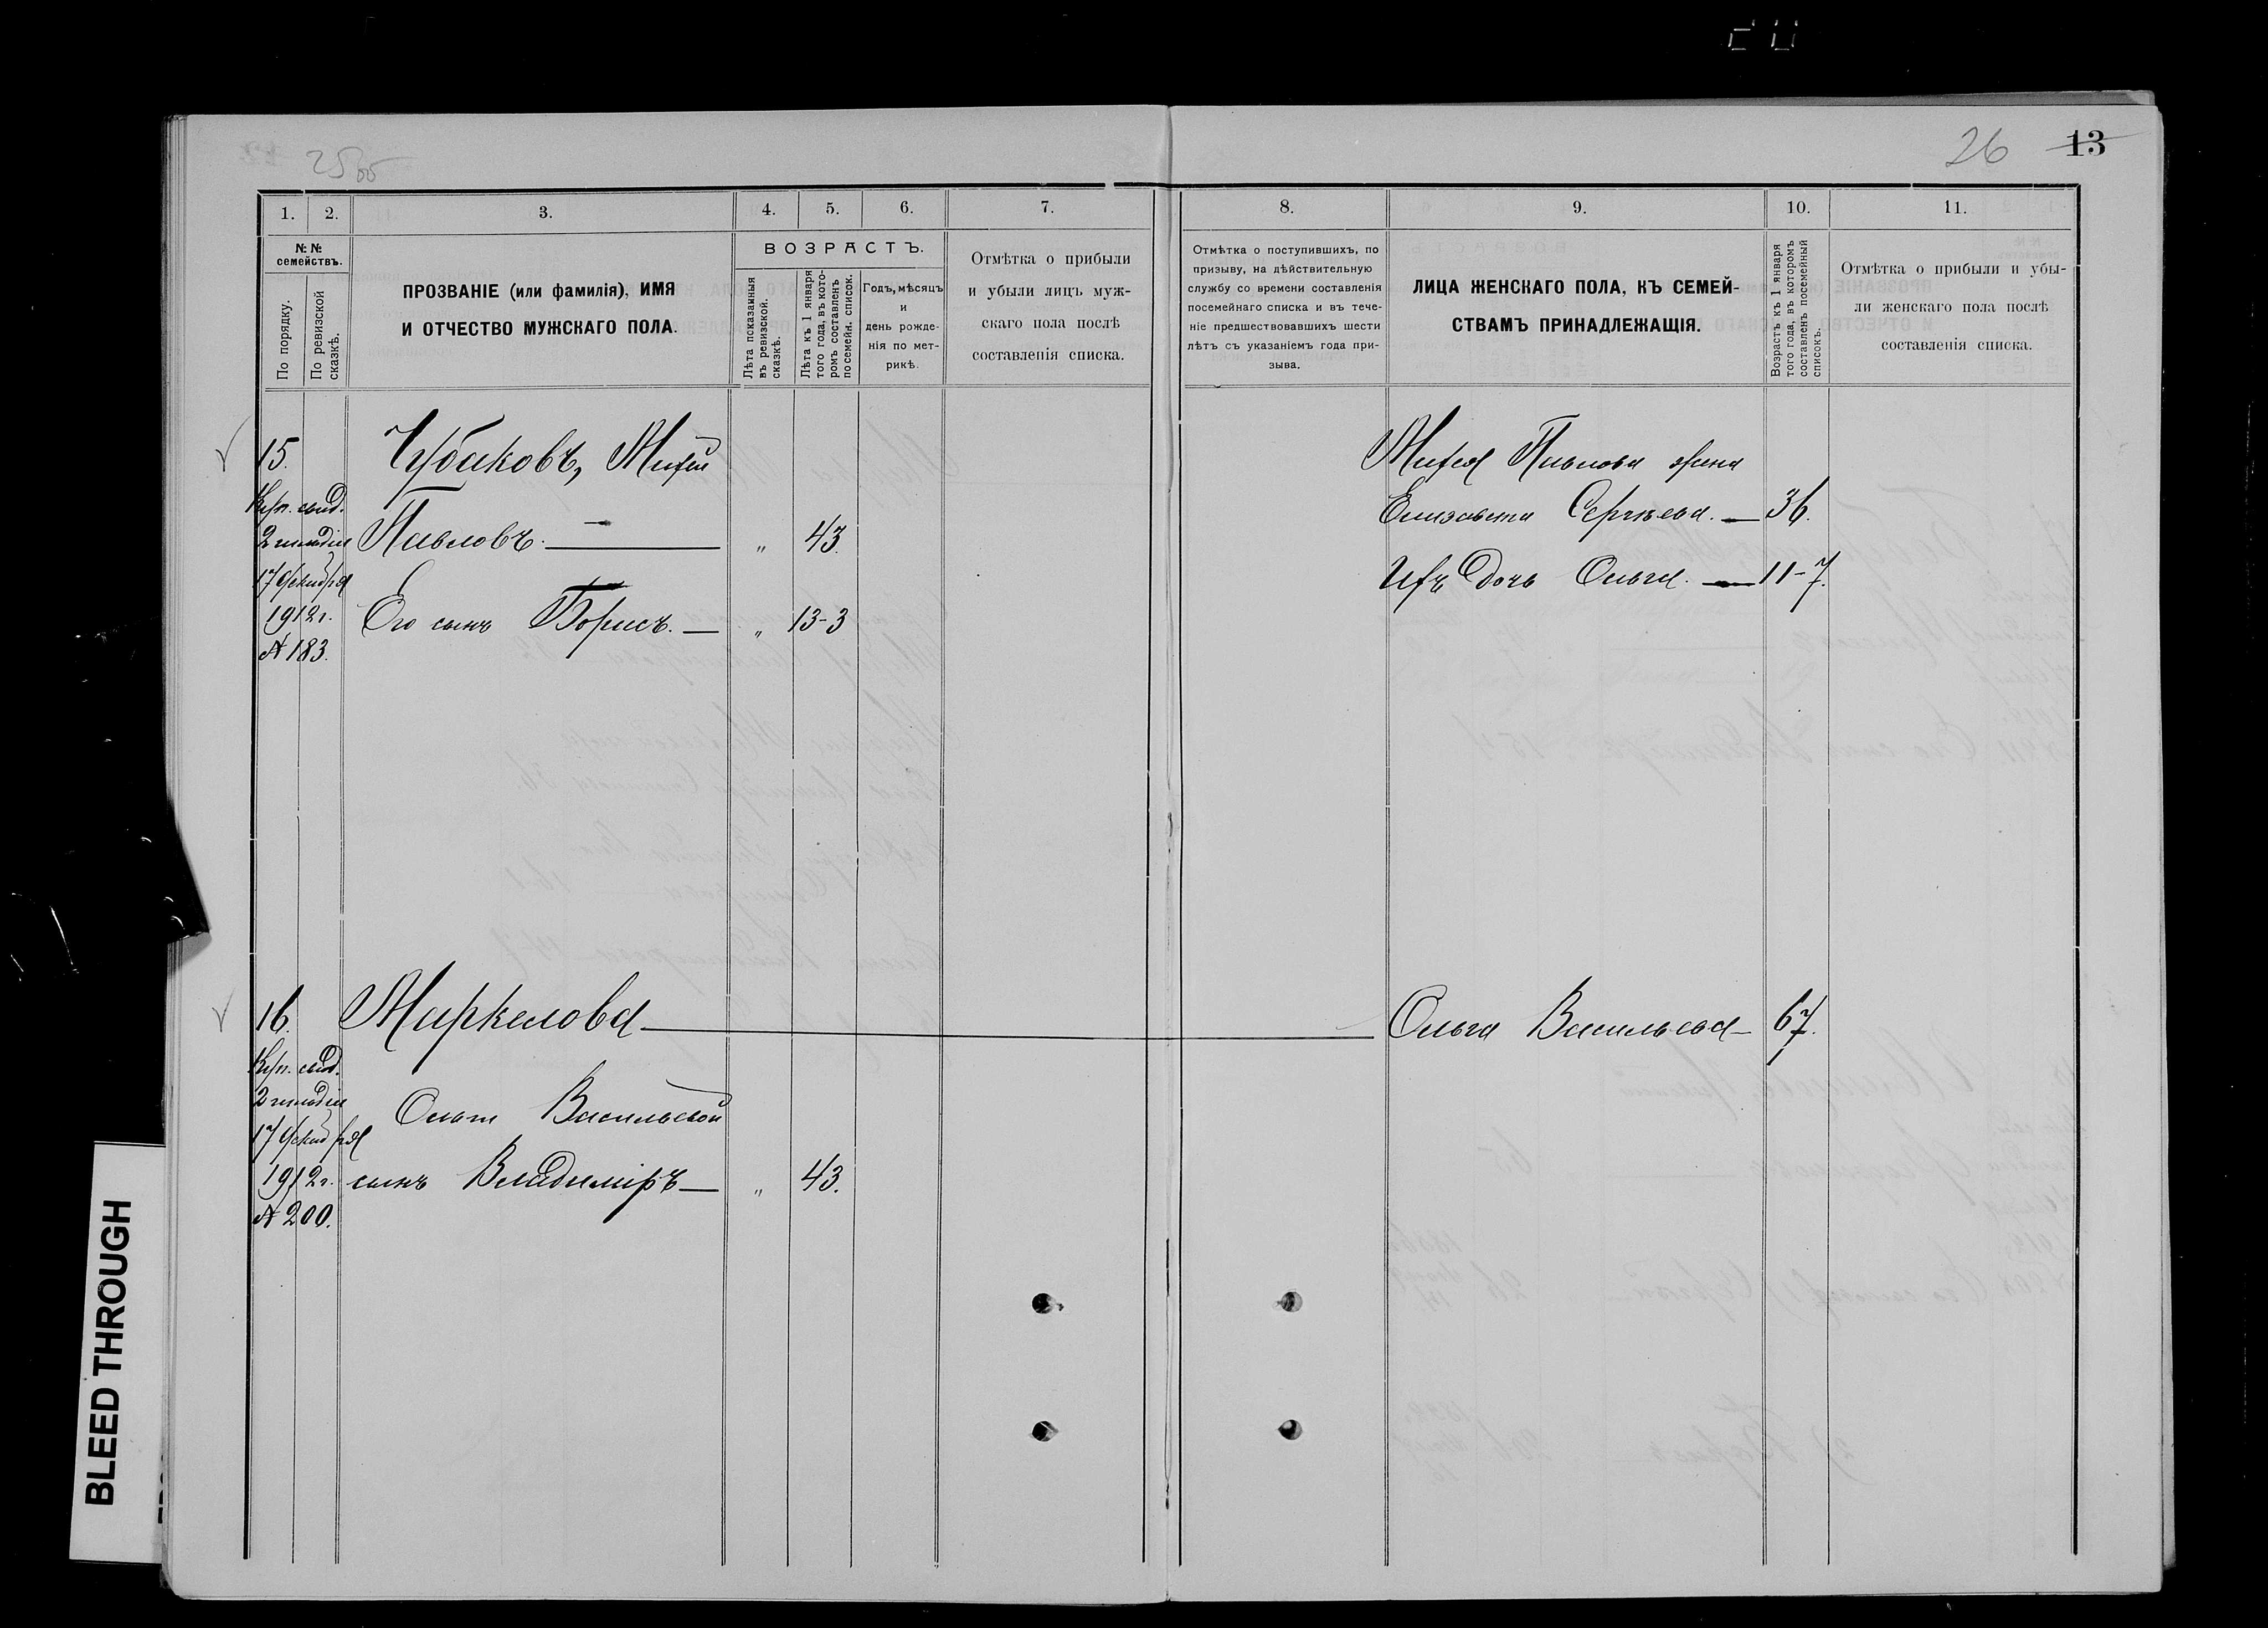 25об
26 13
1. 2. 3. 4. 5. 6. 7.
№№ семействъ.
По порядку.
По ревизской сказкѣ.
ПРОЗВАНІЕ (или фамилія), ИМЯ
И ОТЧЕСТВО МУЖСКАГО ПОЛА.
ВОЗРАСТЪ.
Лѣта показанныя
въ ревизской.
сказкѣ.
Лѣта къ 1 января
того года, въ кото-
ромъ составленъ
посемейн. список.
Годъ, мѣсяцъ
и
день рожде-
нія по мет-
рикѣ.
Отмѣтка о прибыли
и убыли лицъ муж-
скаго пола послѣ
составленія списка.
15. Чубаковъ, Михаил
Куп. свид.
2 гильдіи Павловъ. — " 43.
17 Декабря
1912 г. Его сынъ Борисъ. — " 13-3
№ 183.
16. Маркелова
Куп. свид.
2 гильдіи Ольги Васильевой
17 Декабря
1912 г. сынъ Владиміръ — " 43.
№ 200.
8. 9. 10. 11.
Отмѣтка о поступившихъ, по
призыву, на дѣйствительную
службу со времени составленія
посемейнаго списка и въ тече-
ніе предшествовавшихъ шести
лѣтъ съ указаніемъ года при-
зыва.
ЛИЦА ЖЕНСКАГО ПОЛА, КЪ СЕМЕЙ-
СТВАМЪ ПРИНАДЛЕЖАЩІЯ.
Возрастъ къ 1 января
того года, въ которомъ
составленъ посемейный
списокъ.
Отмѣтка о прибыли и убы-
ли женскаго пола послѣ
составленія списка.
Михаила Павлова жена
Елизавета Сергѣева. — 36.
Ихъ дочь Ольга. — 11-7.
Ольга Васильева — 67.
BLEED THROUGH